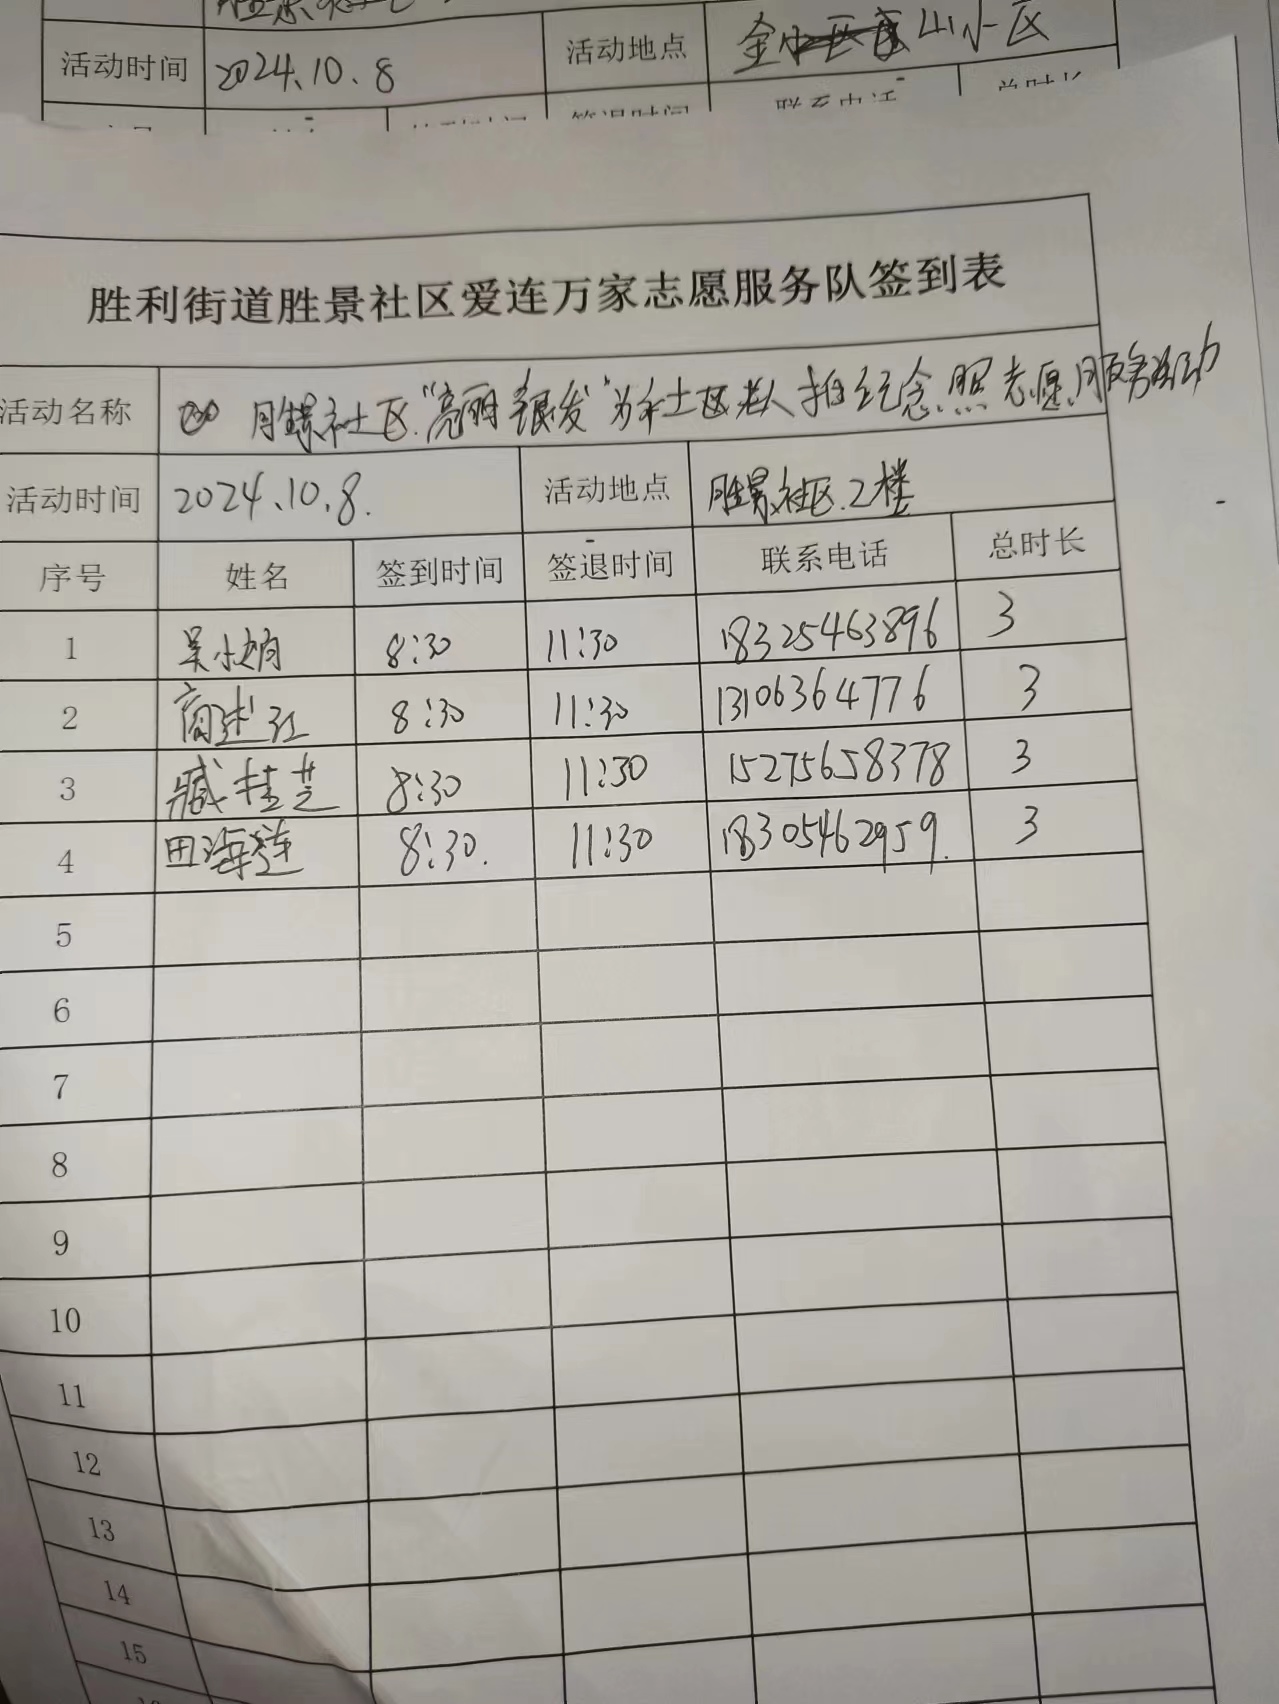 活动时间 2024.10.8 活动地点 金山小区
胜利街道胜景社区爱连万家志愿服务队签到表
活动名称 胜景社区“亮丽银发”为社区老人拍纪念照志愿服务活动
活动时间 2024.10.8. 活动地点 胜景社区2楼
序号 姓名 签到时间 签退时间 联系电话 总时长
1 吴小娟 8:30 11:30 18325463896 3
2 商述红 8:30 11:30 13106364776 3
3 臧桂芝 8:30 11:30 15275658378 3
4 田海莲 8:30. 11:30 18305462959. 3
5
6
7
8
9
10
11
12
13
14
15